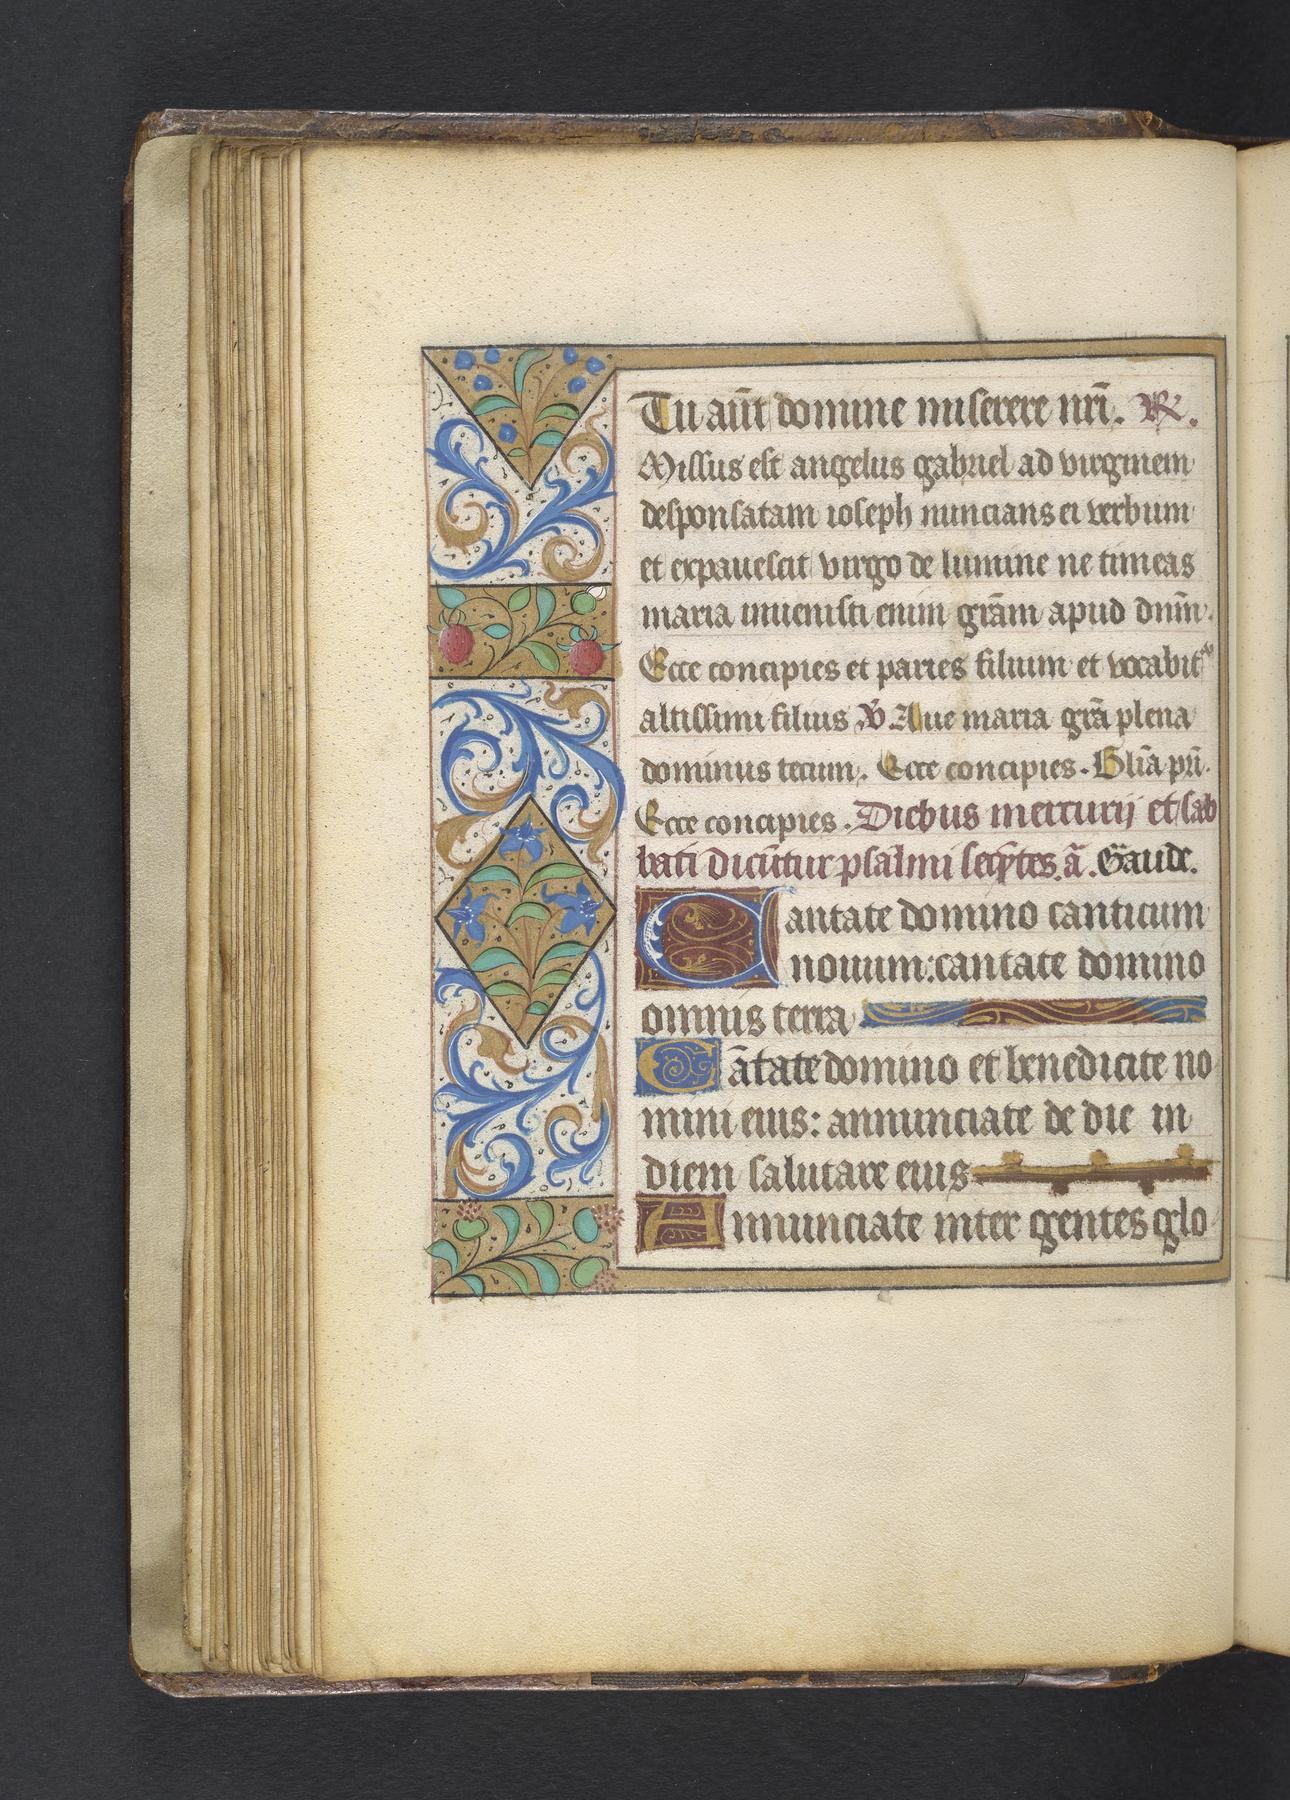 Tu aūt domine miserere nr̄i. ℟.
Missus est angelus gabriel ad virginem
desponsatam ioseph nuncians ei verbum
et expauescit virgo de lumine ne timeas
maria inuenisti enim grām apud dn̄m.
Ecce concipies et paries filium et vocabit᷑
altissimi filius ℣ Aue maria grā plena
dominus tecum. Ecce concipies. Glīa pr̄i.
Ecce concipies. Diebus mercurij et sab
bati dicūtur psalmi seq̄ntes. ā. Gaude.
Cantate domino canticum
nouum: cantate domino
omnis terra
Cātate domino et benedicite no
mini eius: annunciate de die in
diem salutare eius
Annunciate inter gentes glo